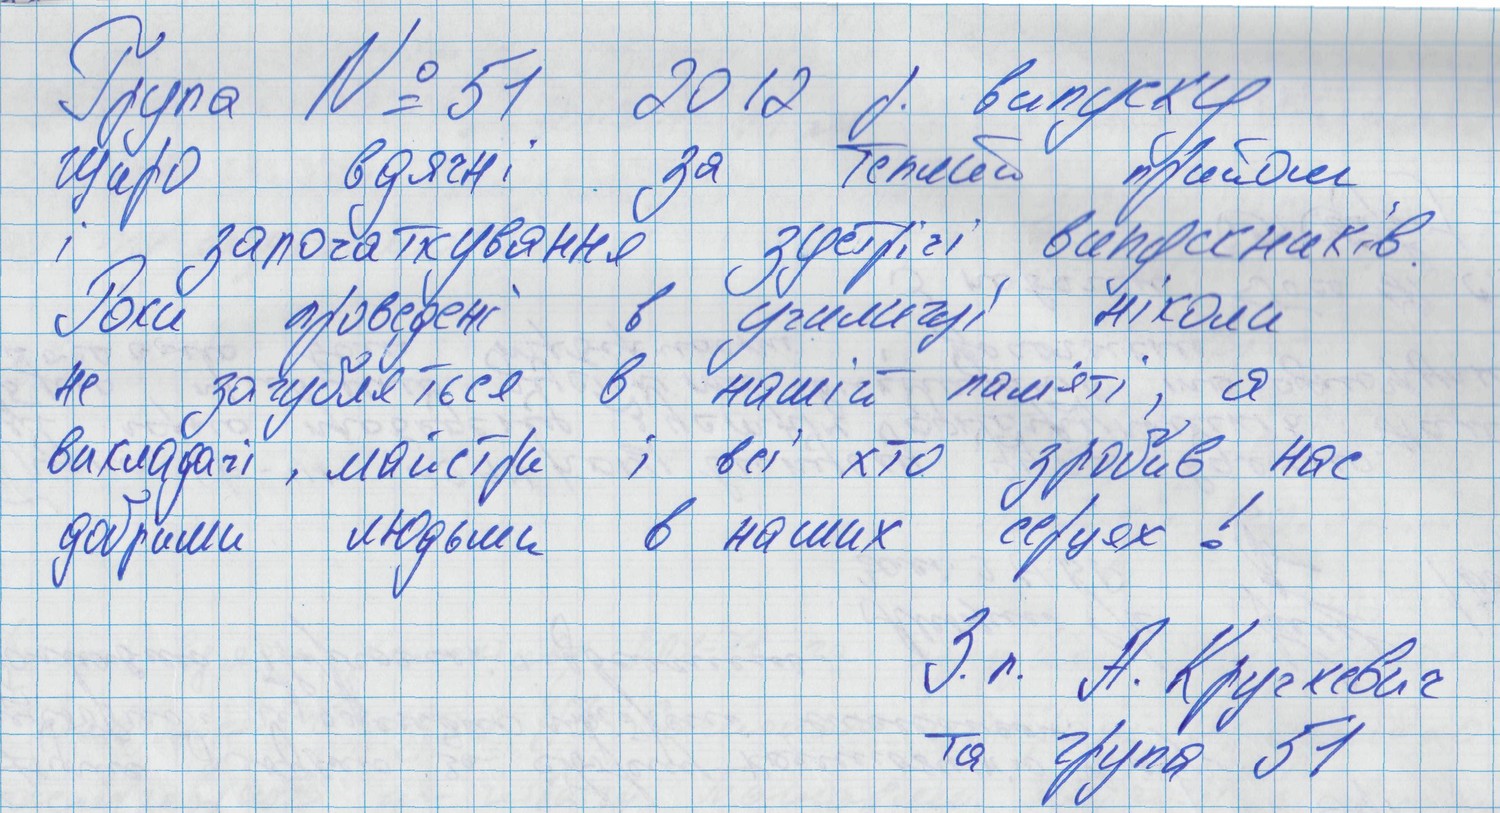 Група № 51 2012 р. випуску
щиро вдячні за теплий прийом
і започаткування зустрічі випускників.
Роки проведені в училищі ніколи
не загубляться в нашій пам'яті, а
викладачі, майстри і всі хто зробив нас
добрими людьми в наших серцях!
З.п. А. Кручкевич
та група 51